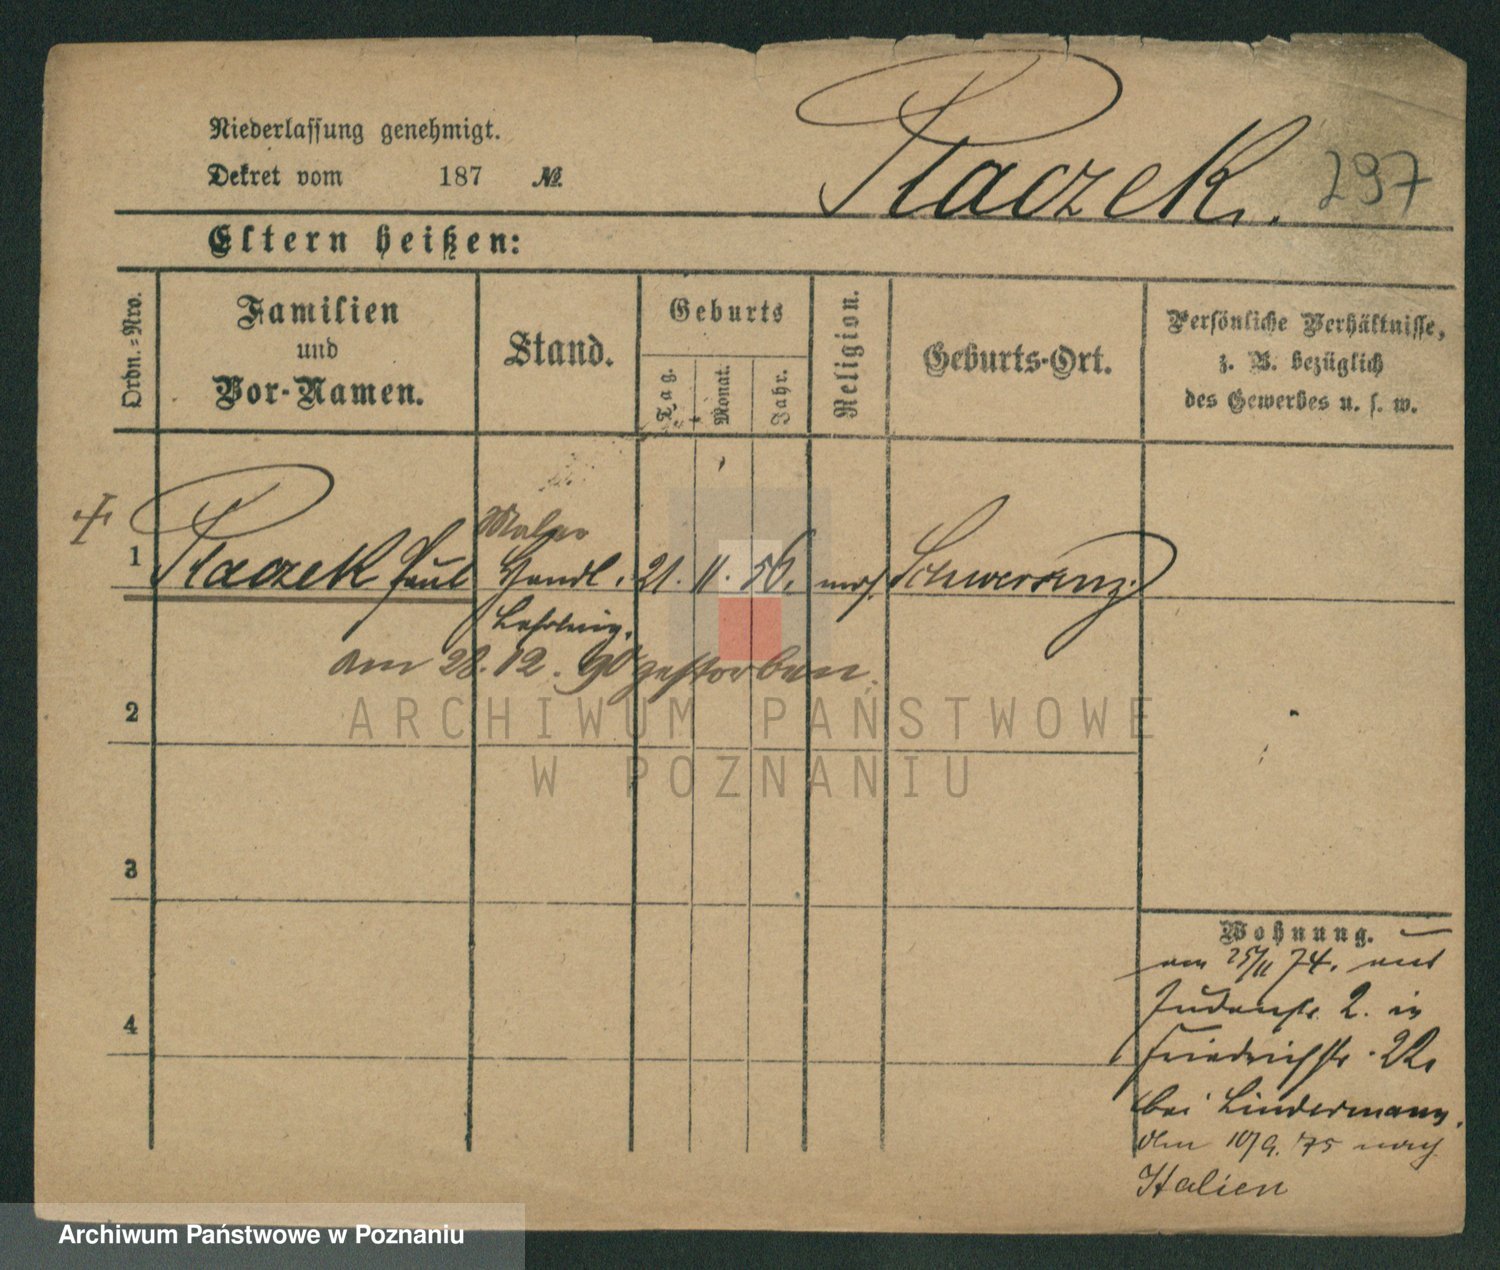 Niederlassung genehmigt.
Dekret vom 187 №
Placzek.
297
Eltern heißen:
Ordn.=Nro.
Familien
und
Vor-Namen.
Stand.
Geburts
Tag.
Monat.
Jahr.
Religion.
Geburts-Ort.
Persönliche Verhältnisse,
z. B. bezüglich
des Gewerbes u. s. w.
Maler
1 Placzek Paul Handl. 21. 11. 56. mos. Schwersenz
Lehrling.
am 28. 12. 90 gestorben.
2
3
4
Wohnung.
am 25/11 74. aus
Judenstr. 2. in
Friedrichstr. 22.
bei Lindermann.
Am 10/9. 75 nach
Italien
ARCHIWUM PAŃSTWOWE
W POZNANIU
Archiwum Państwowe w Poznaniu